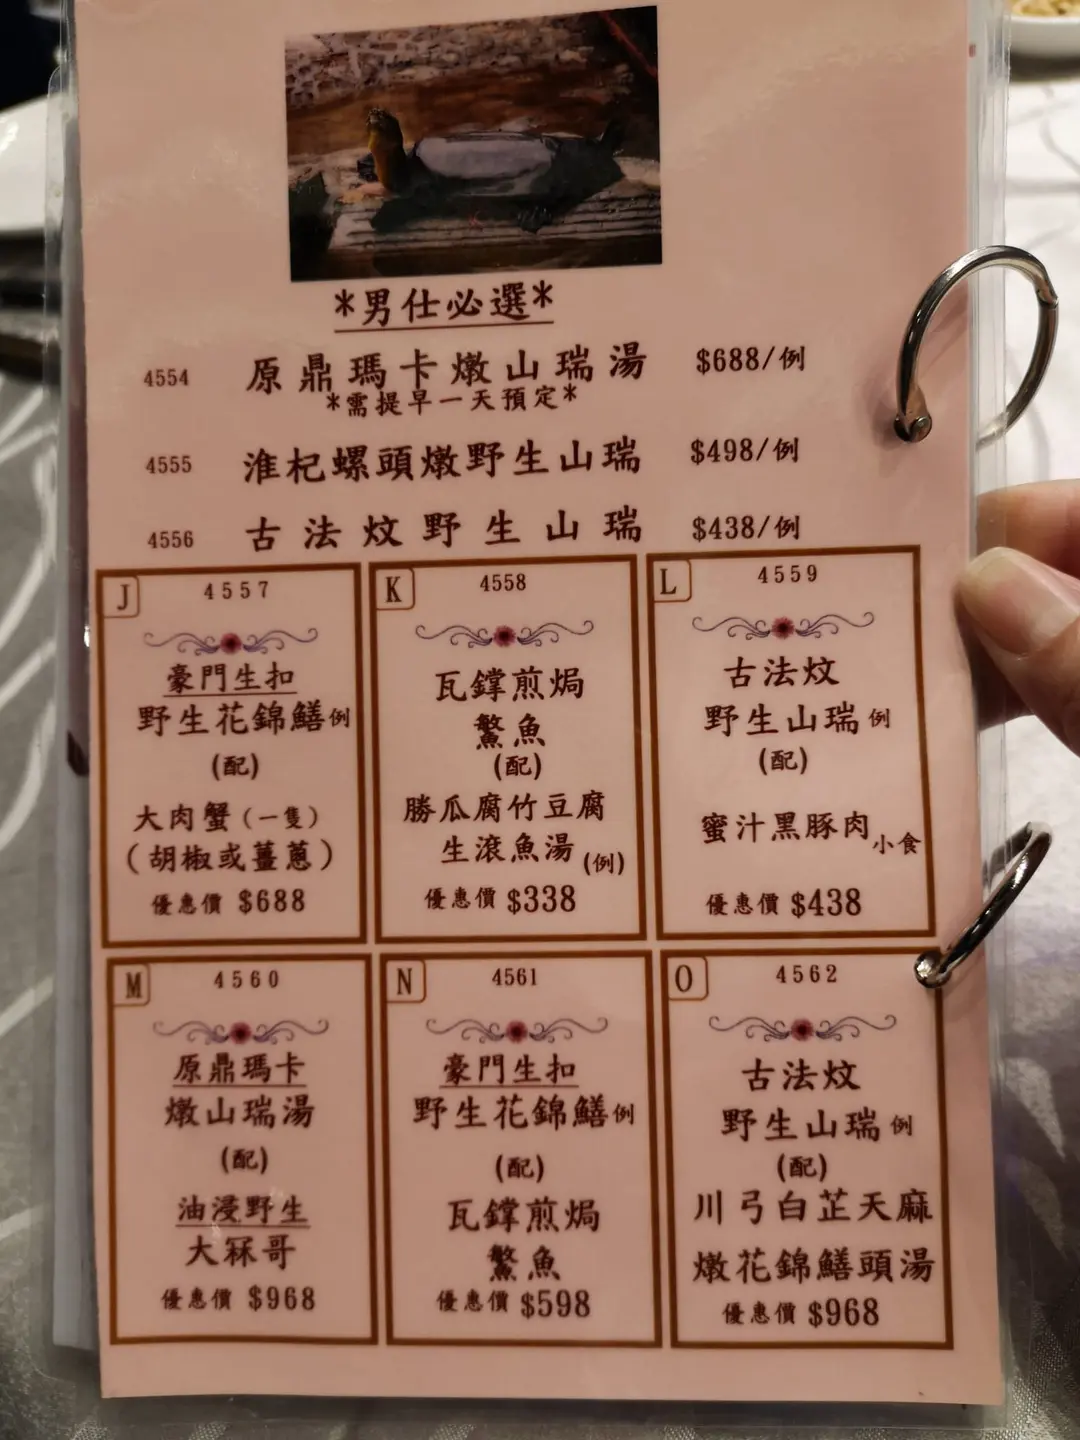 *男仕必選*
4554 原鼎瑪卡燉山瑞湯 $688/例
*需提早一天預定*
4555 淮杞螺頭燉野生山瑞 $498/例
4556 古法炆野生山瑞 $438/例
J 4557
豪門生扣
野生花錦鱔例
(配)
大肉蟹(一隻)
(胡椒或薑蔥)
優惠價 $688
K 4558
瓦鐣煎焗
鱉魚
(配)
勝瓜腐竹豆腐
生滾魚湯(例)
優惠價 $338
L 4559
古法炆
野生山瑞例
(配)
蜜汁黑豚肉小食
優惠價 $438
M 4560
原鼎瑪卡
燉山瑞湯
(配)
油浸野生
大冧哥
優惠價 $968
N 4561
豪門生扣
野生花錦鱔例
(配)
瓦鐣煎焗
鱉魚
優惠價 $598
O 4562
古法炆
野生山瑞例
(配)
川弓白芷天麻
燉花錦鱔頭湯
優惠價 $968